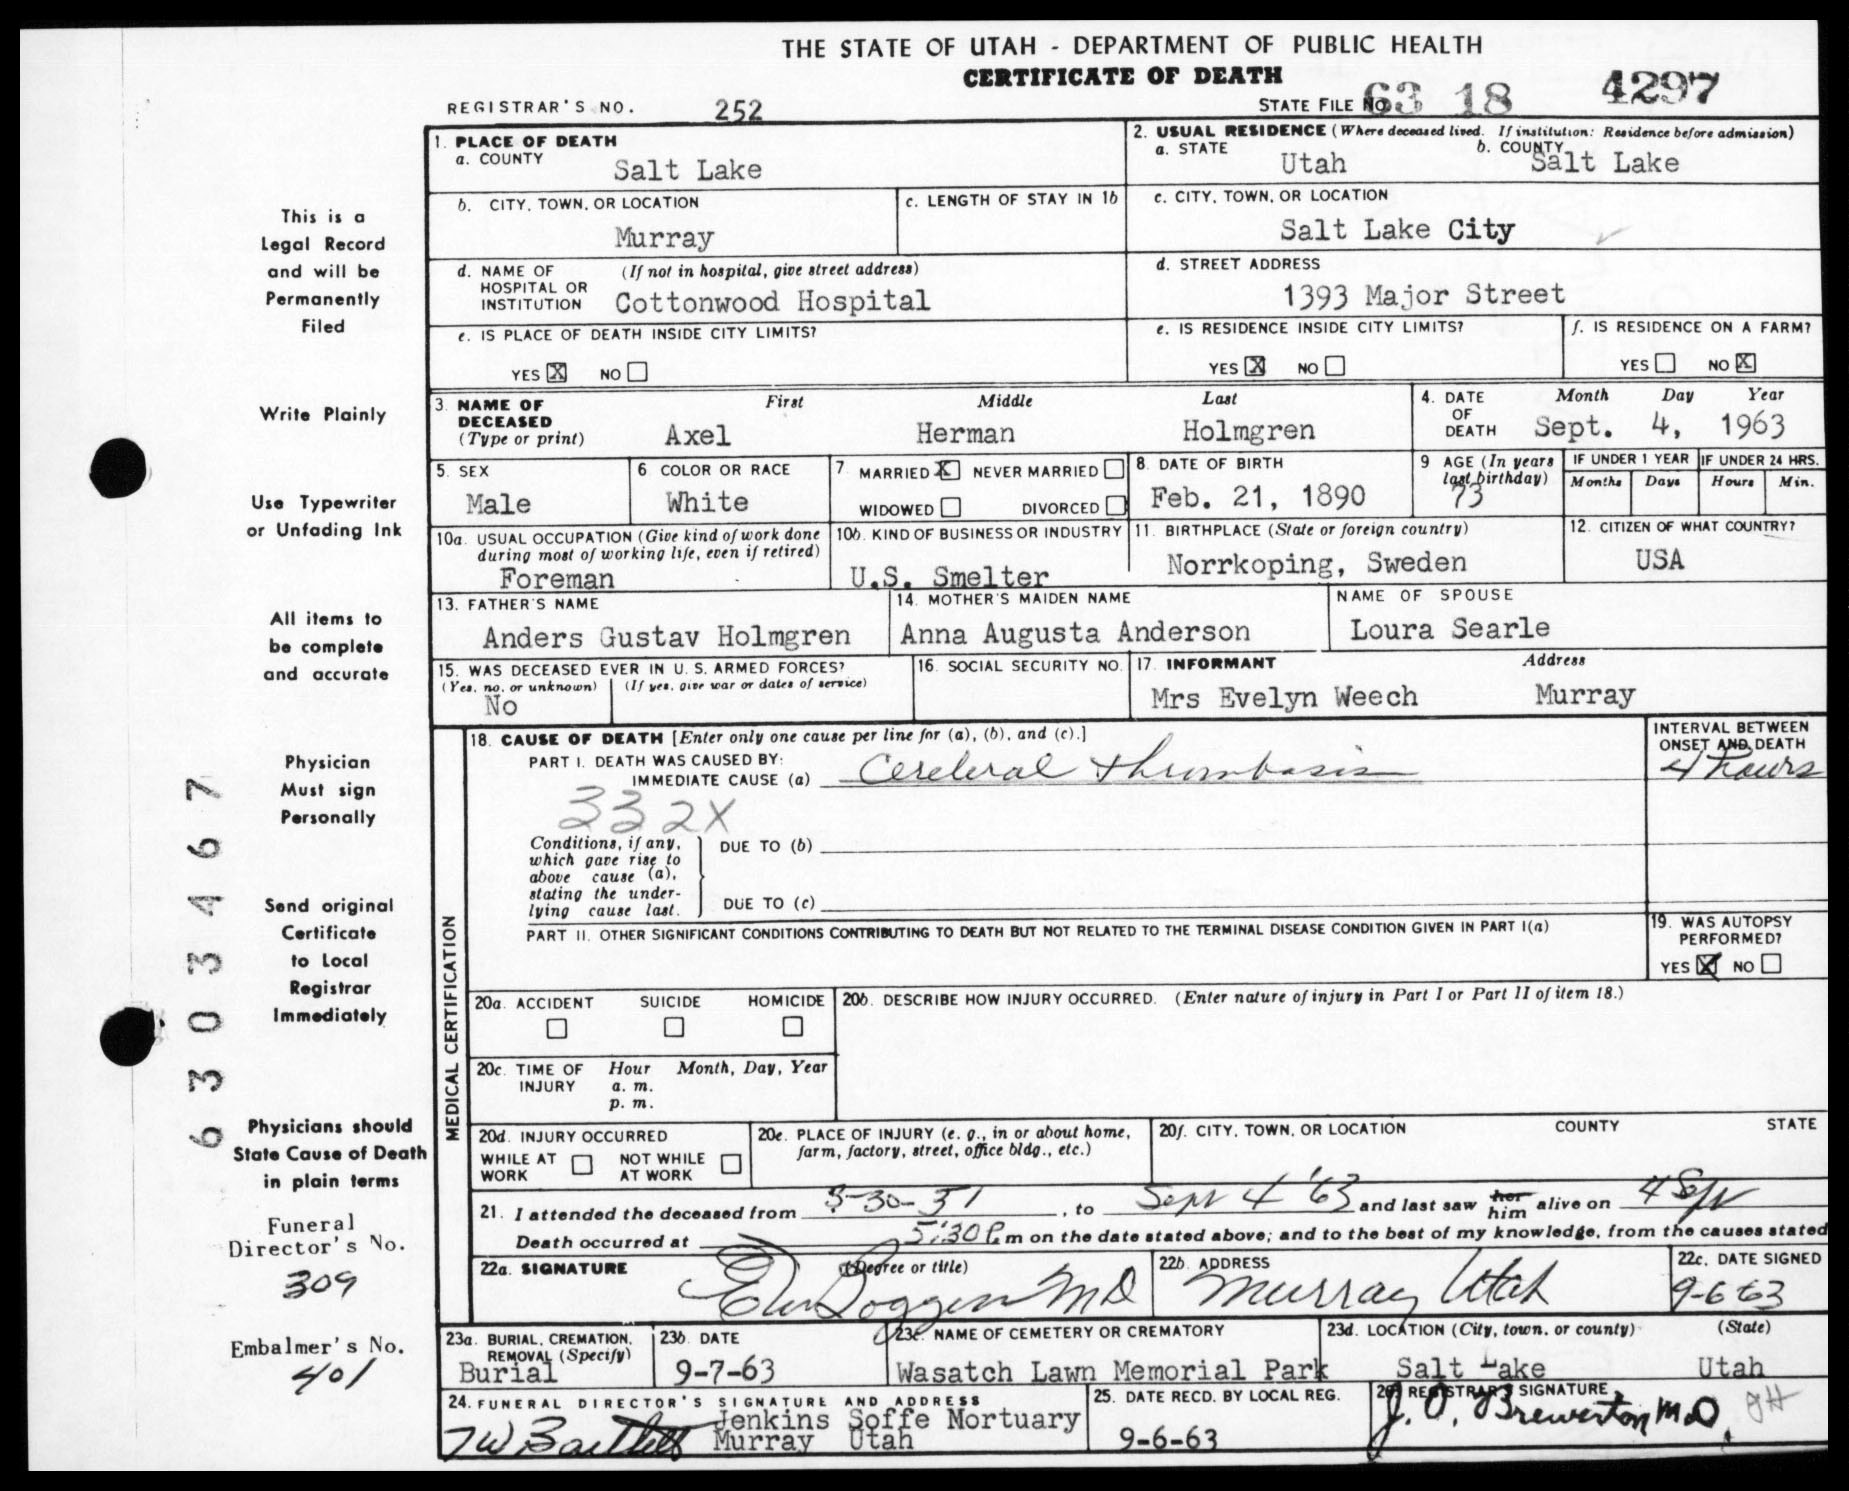 THE STATE OF UTAH - DEPARTMENT OF PUBLIC HEALTH
CERTIFICATE OF DEATH
REGISTRAR'S NO. 252
STATE FILE NO. 63 18 4297
This is a
Legal Record
and will be
Permanently
Filed
Write Plainly
Use Typewriter
or Unfading Ink
All items to
be complete
and accurate
Physician
Must sign
Personally
Send original
Certificate
to Local
Registrar
Immediately
Physicians should
State Cause of Death
in plain terms
Funeral
Director's No.
309
Embalmer's No.
401
6303467
1. PLACE OF DEATH
a. COUNTY
Salt Lake
2. USUAL RESIDENCE (Where deceased lived. If institution: Residence before admission)
a. STATE Utah b. COUNTY Salt Lake
b. CITY, TOWN, OR LOCATION
Murray
c. LENGTH OF STAY IN 1b
c. CITY, TOWN, OR LOCATION
Salt Lake City
d. NAME OF (If not in hospital, give street address)
HOSPITAL OR
INSTITUTION Cottonwood Hospital
d. STREET ADDRESS
1393 Major Street
e. IS PLACE OF DEATH INSIDE CITY LIMITS?
YES X NO
e. IS RESIDENCE INSIDE CITY LIMITS?
YES X NO
f. IS RESIDENCE ON A FARM?
YES NO X
3. NAME OF First Middle Last
DECEASED
(Type or print) Axel Herman Holmgren
4. DATE Month Day Year
OF
DEATH Sept. 4, 1963
5. SEX
Male
6 COLOR OR RACE
White
7. MARRIED X NEVER MARRIED
WIDOWED DIVORCED
8. DATE OF BIRTH
Feb. 21, 1890
9 AGE (In years
last birthday)
73
IF UNDER 1 YEAR
Months Days
IF UNDER 24 HRS.
Hours Min.
10a. USUAL OCCUPATION (Give kind of work done
during most of working life, even if retired)
Foreman
10b. KIND OF BUSINESS OR INDUSTRY
U.S. Smelter
11. BIRTHPLACE (State or foreign country)
Norrkoping, Sweden
12. CITIZEN OF WHAT COUNTRY?
USA
13. FATHER'S NAME
Anders Gustav Holmgren
14. MOTHER'S MAIDEN NAME
Anna Augusta Anderson
NAME OF SPOUSE
Loura Searle
15. WAS DECEASED EVER IN U. S. ARMED FORCES?
(Yes, no, or unknown) (If yes, give war or dates of service)
No
16. SOCIAL SECURITY NO.
17. INFORMANT Address
Mrs Evelyn Weech Murray
MEDICAL CERTIFICATION
18. CAUSE OF DEATH [Enter only one cause per line for (a), (b), and (c).]
PART I. DEATH WAS CAUSED BY:
IMMEDIATE CAUSE (a) Cerebral thrombosis
INTERVAL BETWEEN
ONSET AND DEATH
4 hours
332X
Conditions, if any,
which gave rise to
above cause (a),
stating the under-
lying cause last.
DUE TO (b)
DUE TO (c)
PART II. OTHER SIGNIFICANT CONDITIONS CONTRIBUTING TO DEATH BUT NOT RELATED TO THE TERMINAL DISEASE CONDITION GIVEN IN PART I(a)
19. WAS AUTOPSY
PERFORMED?
YES X NO
20a. ACCIDENT SUICIDE HOMICIDE
20b. DESCRIBE HOW INJURY OCCURRED. (Enter nature of injury in Part I or Part II of item 18.)
20c. TIME OF Hour Month, Day, Year
INJURY a. m.
p. m.
20d. INJURY OCCURRED
WHILE AT NOT WHILE
WORK AT WORK
20e. PLACE OF INJURY (e. g., in or about home,
farm, factory, street, office bldg., etc.)
20f. CITY, TOWN, OR LOCATION COUNTY STATE
21. I attended the deceased from 3-30-51, to Sept 4 '63 and last saw her him alive on 4 Sept
Death occurred at 5:30 P. m on the date stated above; and to the best of my knowledge, from the causes stated
22a. SIGNATURE (Degree or title)
MD
22b. ADDRESS
Murray Utah
22c. DATE SIGNED
9-6-63
23a. BURIAL, CREMATION,
REMOVAL (Specify)
Burial
23b. DATE
9-7-63
23c. NAME OF CEMETERY OR CREMATORY
Wasatch Lawn Memorial Park
23d. LOCATION (City, town, or county) (State)
Salt Lake Utah
24. FUNERAL DIRECTOR'S SIGNATURE AND ADDRESS
TW Bartlett Jenkins Soffe Mortuary
Murray Utah
25. DATE RECD. BY LOCAL REG.
9-6-63
26. REGISTRAR'S SIGNATURE
J. O. Brewerton M.D.